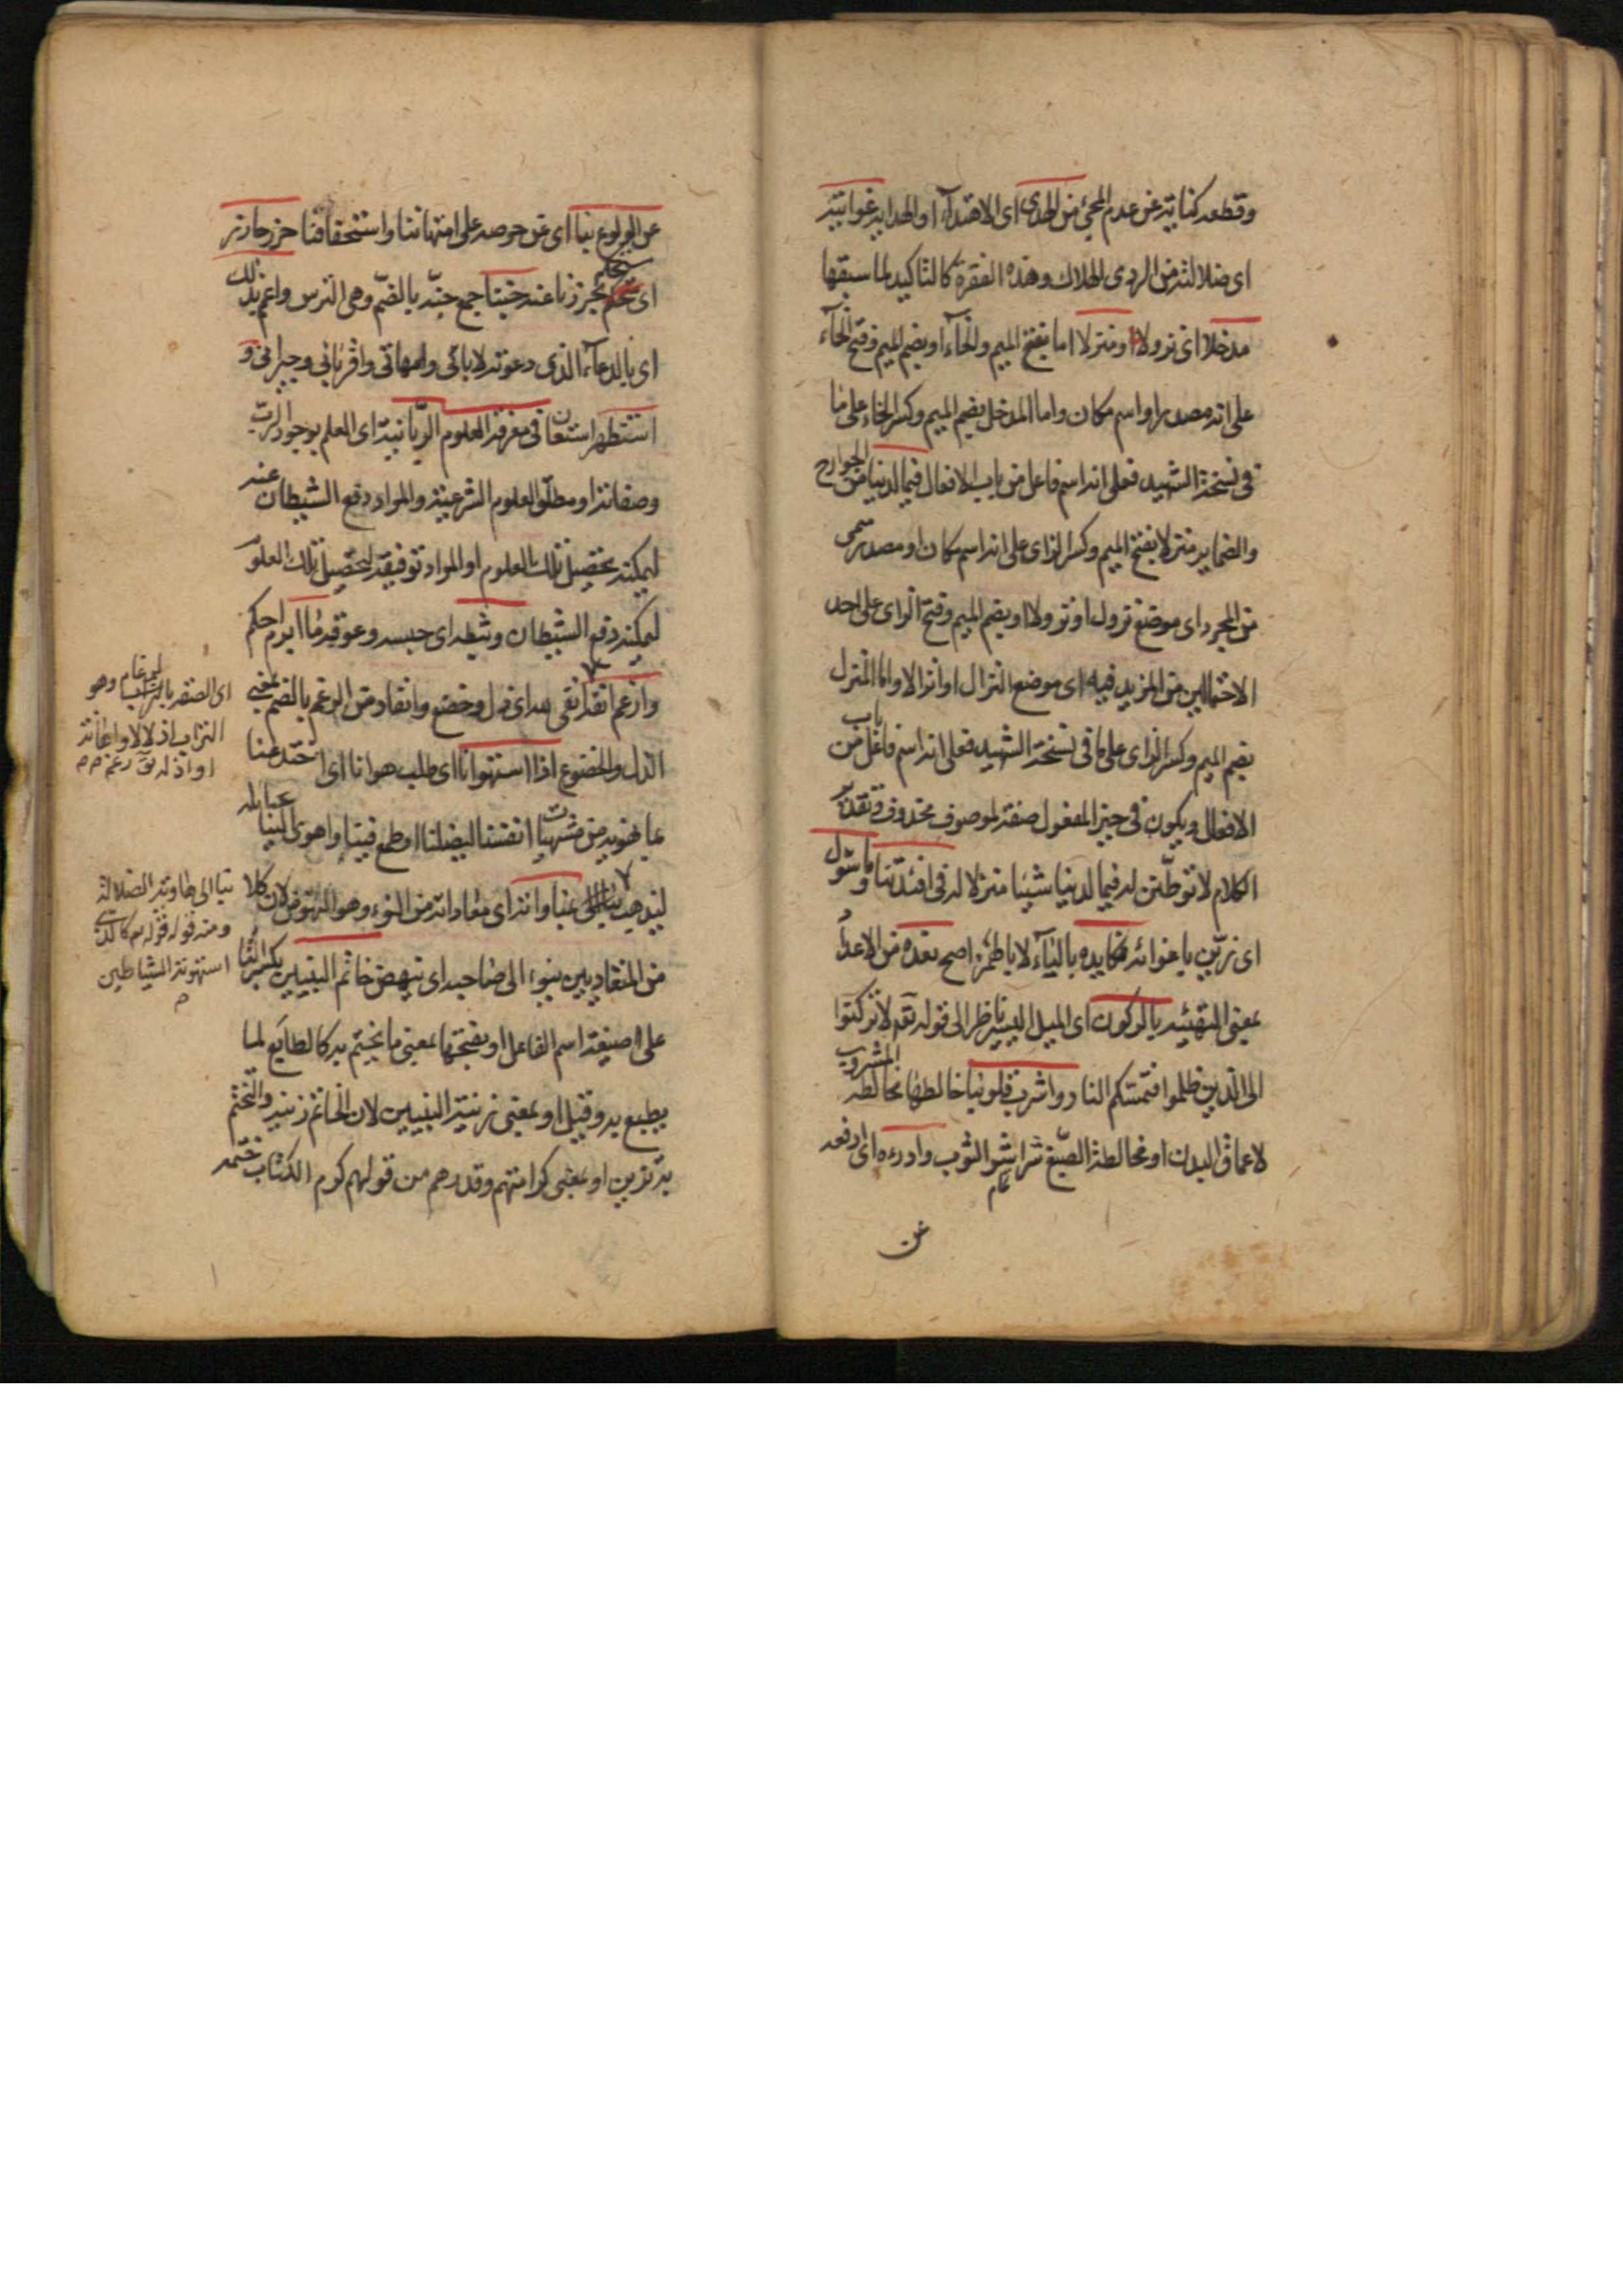 وقطعه كناية عن عدم المجئ من الهدى اى الاهتداء او الهداية غوايته
اى ضلالته من الردى الهلاك وهذه الفقرة كالتاكيد لما سبقها
مدخلا اى نزولا او منزلا اما بفتح الميم والخاء او بضم الميم وفتح الخاء
على انه مصدر او اسم مكان واما المدخل بضم الميم وكسر الخاء على ما
فى نسخة الشهيد فعلى انه اسم فاعل من باب الافعال فيما لدينا من الجوارح
والضماير منزلا بفتح الميم وكسر الزاى على انه اسم مكان او مصدر
من المجرد اى موضع نزول او نزولا او بضم الميم وفتح الزاى على احد
الاحتمالين من المزيد فيه اى موضع انزال او انزالا واما المنزل
بضم الميم وكسر الزاى على ما فى نسخة الشهيد فعلى انه اسم فاعل من باب
الافعال ويكون فى حيز المفعول صفة لموصوف محذوف وتقدير
الكلام لا توطنن له فيما لدينا شيئا منزلا له فى افئدتنا وما سول
اى زين باغوائه مكايده بالياء لا باطهر اصح نعده من الاعداد
بمعنى التهيئه بالركون اى الميل اليسير ناظر الى قوله تع لا تركنوا
الى الذين ظلموا فتمسكم النار واشرب قلوبنا خالطها مخالطة المشروب
لاعماق البدن او مخالطة الصبغ شراشر الثوب وادرءه اى ادفعه
عن
عن الولوع بنا اى عن حرصه على امتهاننا واستحقافنا حرز حارز
اى محكم يحرزنا عنه جنننا جمع جنة بالضم وهى الترس واعمم بذلك
اى بالدعاء الذى دعوته لابائى وامهاتى واقربائى وجيرانى و
استظهر استعان فى معرفة العلوم الربانية اى العلم بوجود الرب
وصفاته او مطلق العلوم الشرعية والمراد دفع الشيطان عنه
ليمكنه تحصيل تلك العلوم او المراد توفيقه لتحصيل تلك العلوم
ليمكنه دفع الشيطان وثبطه اى حبسه وعوقه ما ابرم احكم
وارغم انفه اى ذل وخضع وانقاد من الرغم بالضم بمعنى
الذل والخضوع اذا استهوانا اى طلب هوانا اى
بما نهويه من مشتهيات انفسنا ليضلنا او طمع فينا واهوى الينا
ليذهب عنا وانه اى معاداته من النوء وهو النهوض لان كلا
من المتعاديين ينوء الى صاحبه اى ينهض خاتم النبيين بكسر التاء
على صيغة اسم الفاعل او بفتحها بمعنى ما يختم به كالطابع لما
يطبع به وقيل او بمعنى زينة النبيين لان الخاتم زينة والتختم
به تزين او بمعنى كرامتهم وقدرهم من قولهم كرم الكتاب ختمه
التراب اذلالا واهانة
ومنه قوله تع كالذى
استهوته الشياطين